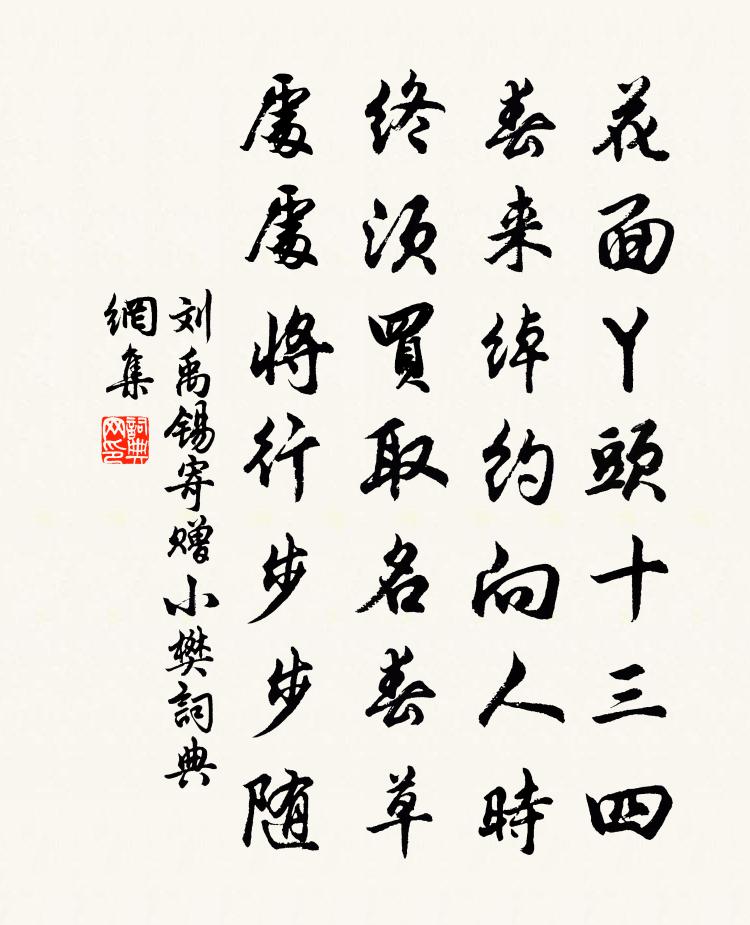 花面丫頭十三四
春来綽約向人時
終須買取名春草
處處將行步步随
刘禹锡寄赠小樊詞典
網集
詞典网印